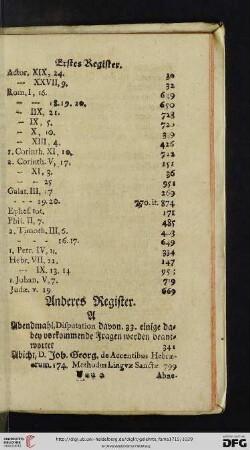 Erstes Register.
Actor. XIX, 24. 30
-- XXVII, 9. 32
Rom. I, 16. 649
-- -- 18. 19. 20. 650
-- IIX, 21. 723
-- IX, 5.
-- X, 10.
-- XIII, 4. 426
1. Corinth. XI, 10.
2. Corinth. V, 17. 151
-- XI, 3. 36
-- -- 25 951
Galat. III, 17 269
- - - 19. 20. 770. it. 874
Ephes. tot. 171
Phil. II, 7. 485
2. Timoth. III, 6.
- - - 16. 17. 649
1. Petr. IV, 11. 334
Hebr. VII, 22, 147
-- IX. 13. 14
1. Johan. V, 7. 719
Judæ. v. 19 669
Anderes Register.
A
Abendmahl, Disputation davon. 33. einige da-
bey vorkommende Fragen werden beant-
wortet 341
Abicht, D. Joh. Georg. de Accentibus Hebræ-
orum. 174. Methodus Lingvæ Sanctæ 799
Abne-
http://digi.ub.uni-heidelberg.de/diglit/gelehrte_fama1715/1029